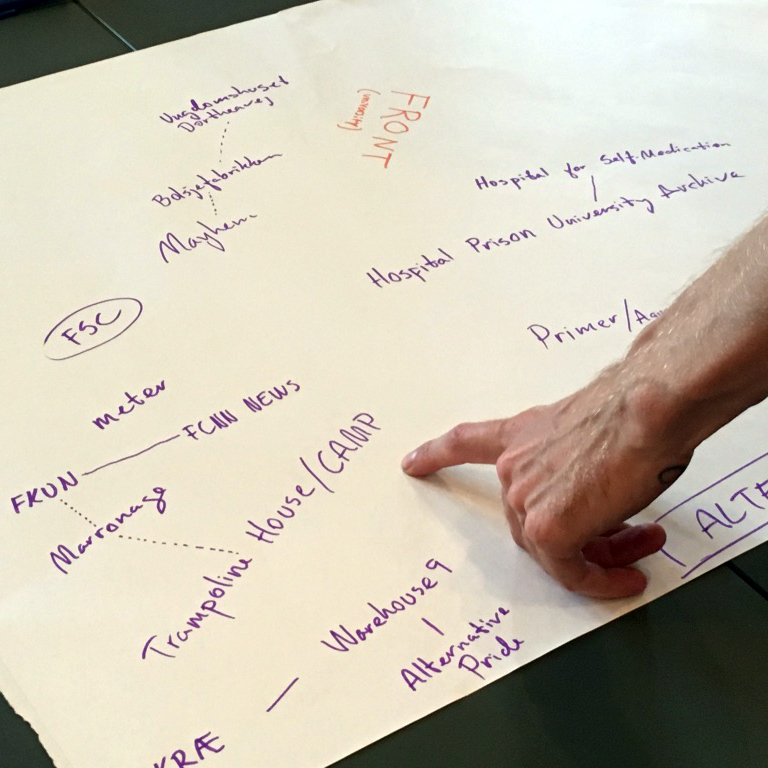 Ungdomshuset
Dortheavej
FRONT
(university)
Bolsjefabrikken
Mayhem
Hospital for Self-Medication
Hospital Prison University Archive
FSC
Primer/
meter
FCNN NEWS
FKUN
Marronage
Trampoline House/CAMP
Warehouse9
Alternative
Pride
KRÆ
ALTE